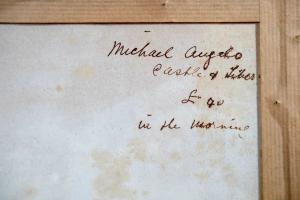 Michael Angelo
Castle & Tiber
£ 40
in the morning